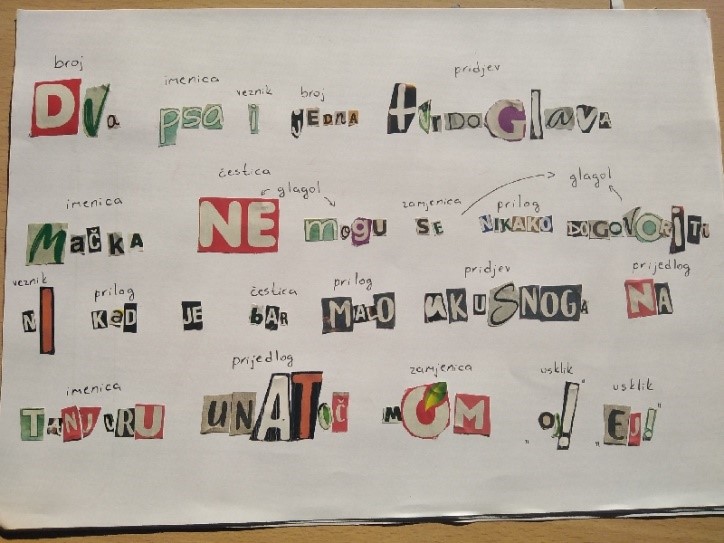 broj imenica veznik broj pridjev
Dva psa i jEDnA tvrDoGlavA
imenica čestica glagol zamjenica prilog glagol
MAČKA NE mogu SE NIKAKO DOGOVORiTi
veznik prilog čestica prilog pridjev prijedlog
NI KaD JE bAR MALO uKuSNOGA NA
imenica prijedlog zamjenica usklik usklik
TANJURU UNATOČ mOM „Oj!" „EJ!"